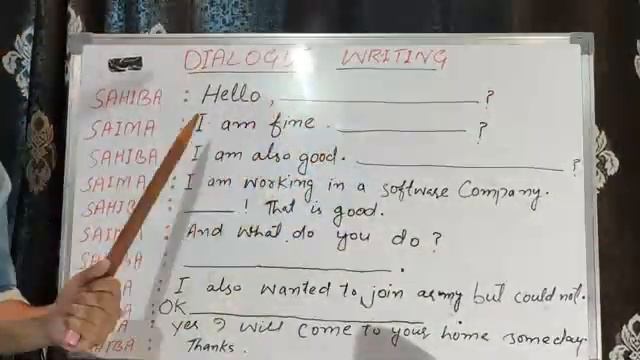 DIALOGUE WRITING
SAHIBA : Hello, ____________ ?
SAIMA : I am fine. ____________ ?
SAHIBA I am also good. ____________ ?
SAIMA : I am working in a software Company.
SAHIBA : ____ ! That is good.
SAIMA : And what do you do ?
____________ .
: I also wanted to join army but could not.
: OK ____________ .
: yes I will come to your home someday.
HIBA : Thanks.